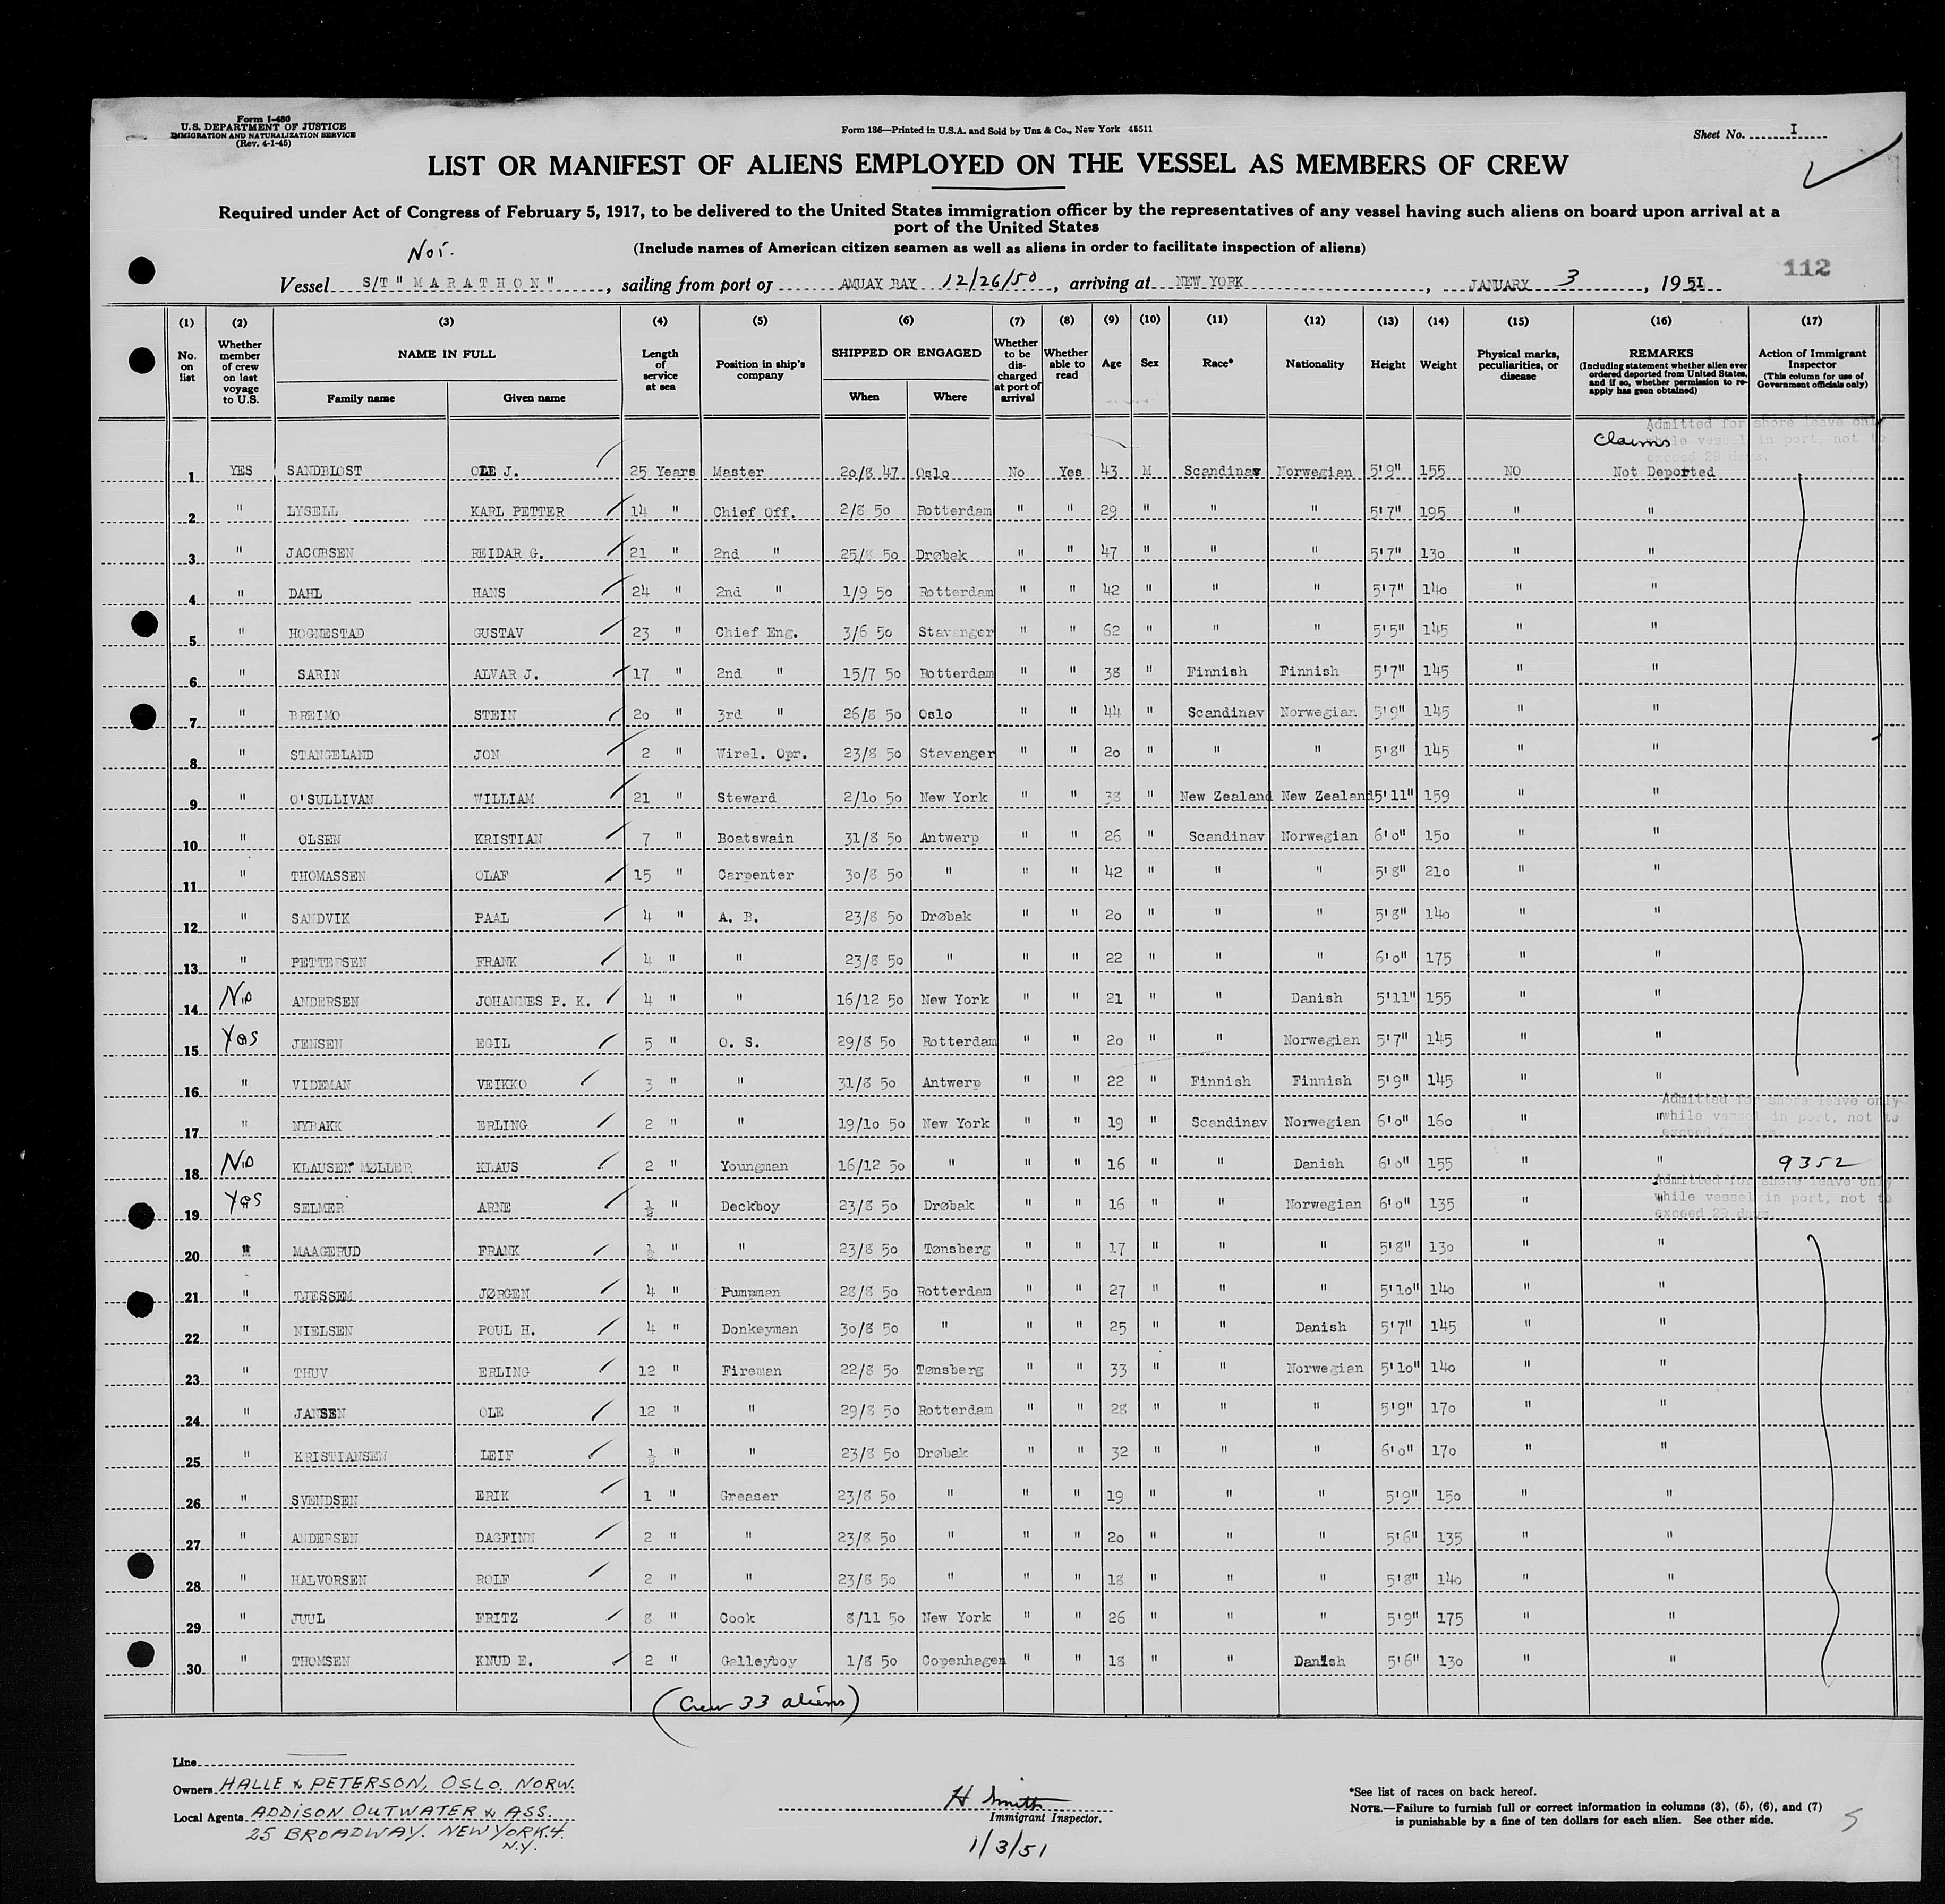 Form I-480
U.S. DEPARTMENT OF JUSTICE
IMMIGRATION AND NATURALIZATION SERVICE
(Rev. 4-1-45)
Form 186—Printed in U.S.A. and Sold by Unz & Co., New York 45511
Sheet No. I
LIST OR MANIFEST OF ALIENS EMPLOYED ON THE VESSEL AS MEMBERS OF CREW
Required under Act of Congress of February 5, 1917, to be delivered to the United States immigration officer by the representatives of any vessel having such aliens on board upon arrival at a
port of the United States
(Include names of American citizen seamen as well as aliens in order to facilitate inspection of aliens)
Nor.
112
Vessel S/T "MARATHON", sailing from port of AMUAY BAY 12/26/50, arriving at NEW YORK, JANUARY 3, 1951
(1) (2) (3) (4) (5) (6) (7) (8) (9) (10) (11) (12) (13) (14) (15) (16) (17)
No. on list
Whether member of crew on last voyage to U.S.
NAME IN FULL
Family name
Given name
Length of service at sea
Position in ship's company
SHIPPED OR ENGAGED
When
Where
Whether to be discharged at port of arrival
Whether able to read
Age
Sex
Race*
Nationality
Height
Weight
Physical marks, peculiarities, or disease
REMARKS
(Including statement whether alien ever ordered deported from United States, and if so, whether permission to re-apply has geen obtained)
Action of Immigrant Inspector
(This column for use of Government officials only)
Admitted for shore leave only
while vessel in port, not to
exceed 29 days.
Claims
1 YES SANDBLOST OLE J. 25 Years Master 20/8 47 Oslo No Yes 43 M Scandinav Norwegian 5'9" 155 NO Not Deported
2 " LYSELL KARL PETTER 14 " Chief Off. 2/8 50 Rotterdam " " 29 " " " 5'7" 195 " "
3 " JACOBSEN REIDAR G. 21 " 2nd " 25/8 50 Drøbak " " 47 " " " 5'7" 130 " "
4 " DAHL HANS 24 " 2nd " 1/9 50 Rotterdam " " 42 " " " 5'7" 140 " "
5 " HOGNESTAD GUSTAV 23 " Chief Eng. 3/6 50 Stavanger " " 62 " " " 5'5" 145 " "
6 " SARIN ALVAR J. 17 " 2nd " 15/7 50 Rotterdam " " 38 " Finnish Finnish 5'7" 145 " "
7 " BREIMO STEIN 20 " 3rd " 26/8 50 Oslo " " 44 " Scandinav Norwegian 5'9" 145 " "
8 " STANGELAND JON 2 " Wirel. Opr. 23/8 50 Stavanger " " 20 " " " 5'8" 145 " "
9 " O'SULLIVAN WILLIAM 21 " Steward 2/10 50 New York " " 38 " New Zealand New Zealand 5'11" 159 " "
10 " OLSEN KRISTIAN 7 " Boatswain 31/8 50 Antwerp " " 26 " Scandinav Norwegian 6'0" 150 " "
11 " THOMASSEN OLAF 15 " Carpenter 30/8 50 " " " 42 " " " 5'8" 210 " "
12 " SANDVIK PAAL 4 " A. B. 23/8 50 Drøbak " " 20 " " " 5'8" 140 " "
13 " PETTERSEN FRANK 4 " " 23/8 50 " " " 22 " " " 6'0" 175 " "
14 No ANDERSEN JOHANNES P. K. 4 " " 16/12 50 New York " " 21 " " Danish 5'11" 155 " "
15 Yes JENSEN EGIL 5 " O. S. 29/8 50 Rotterdam " " 20 " " Norwegian 5'7" 145 " "
16 " VIDEMAN VEIKKO 3 " " 31/8 50 Antwerp " " 22 " Finnish Finnish 5'9" 145 " "
Admitted for shore leave only
while vessel in port, not to
exceed 29 days.
17 " NYBAKK ERLING 2 " " 19/10 50 New York " " 19 " Scandinav Norwegian 6'0" 160 " "
18 No KLAUSEN MØLLER KLAUS 2 " Youngman 16/12 50 " " " 16 " " Danish 6'0" 155 " " 9352
Admitted for shore leave only
while vessel in port, not to
exceed 29 days.
19 Yes SELMER ARNE ½ " Deckboy 23/8 50 Drøbak " " 16 " " Norwegian 6'0" 135 " "
20 " MAAGERUD FRANK ½ " " 23/8 50 Tønsberg " " 17 " " " 5'8" 130 " "
21 " TJESSEM JØRGEN 4 " Pumpman 28/8 50 Rotterdam " " 27 " " " 5'10" 140 " "
22 " NIELSEN POUL H. 4 " Donkeyman 30/8 50 " " " 25 " " Danish 5'7" 145 " "
23 " THUV ERLING 12 " Fireman 22/8 50 Tønsberg " " 33 " " Norwegian 5'10" 140 " "
24 " JANSEN OLE 12 " " 29/8 50 Rotterdam " " 28 " " " 5'9" 170 " "
25 " KRISTIANSEN LEIF ½ " " 23/8 50 Drøbak " " 32 " " " 6'0" 170 " "
26 " SVENDSEN ERIK 1 " Greaser 23/8 50 " " " 19 " " " 5'9" 150 " "
27 " ANDERSEN DAGFINN 2 " " 23/8 50 " " " 20 " " " 5'6" 135 " "
28 " HALVORSEN ROLF 2 " " 23/8 50 " " " 18 " " " 5'8" 140 " "
29 " JUUL FRITZ 8 " Cook 8/11 50 New York " " 26 " " " 5'9" 175 " "
30 " THOMSEN KNUD E. 2 " Galleyboy 1/8 50 Copenhagen " " 18 " " Danish 5'6" 130 " "
(Crew 33 aliens)
Line
Owners HALLE & PETERSON, OSLO. NORW.
Local Agents ADDISON OUTWATER & ASS.
25 BROADWAY. NEW YORK.4.
N.Y.
H Smith
Immigrant Inspector.
1/3/51
*See list of races on back hereof.
NOTE.—Failure to furnish full or correct information in columns (3), (5), (6), and (7)
is punishable by a fine of ten dollars for each alien. See other side.
5